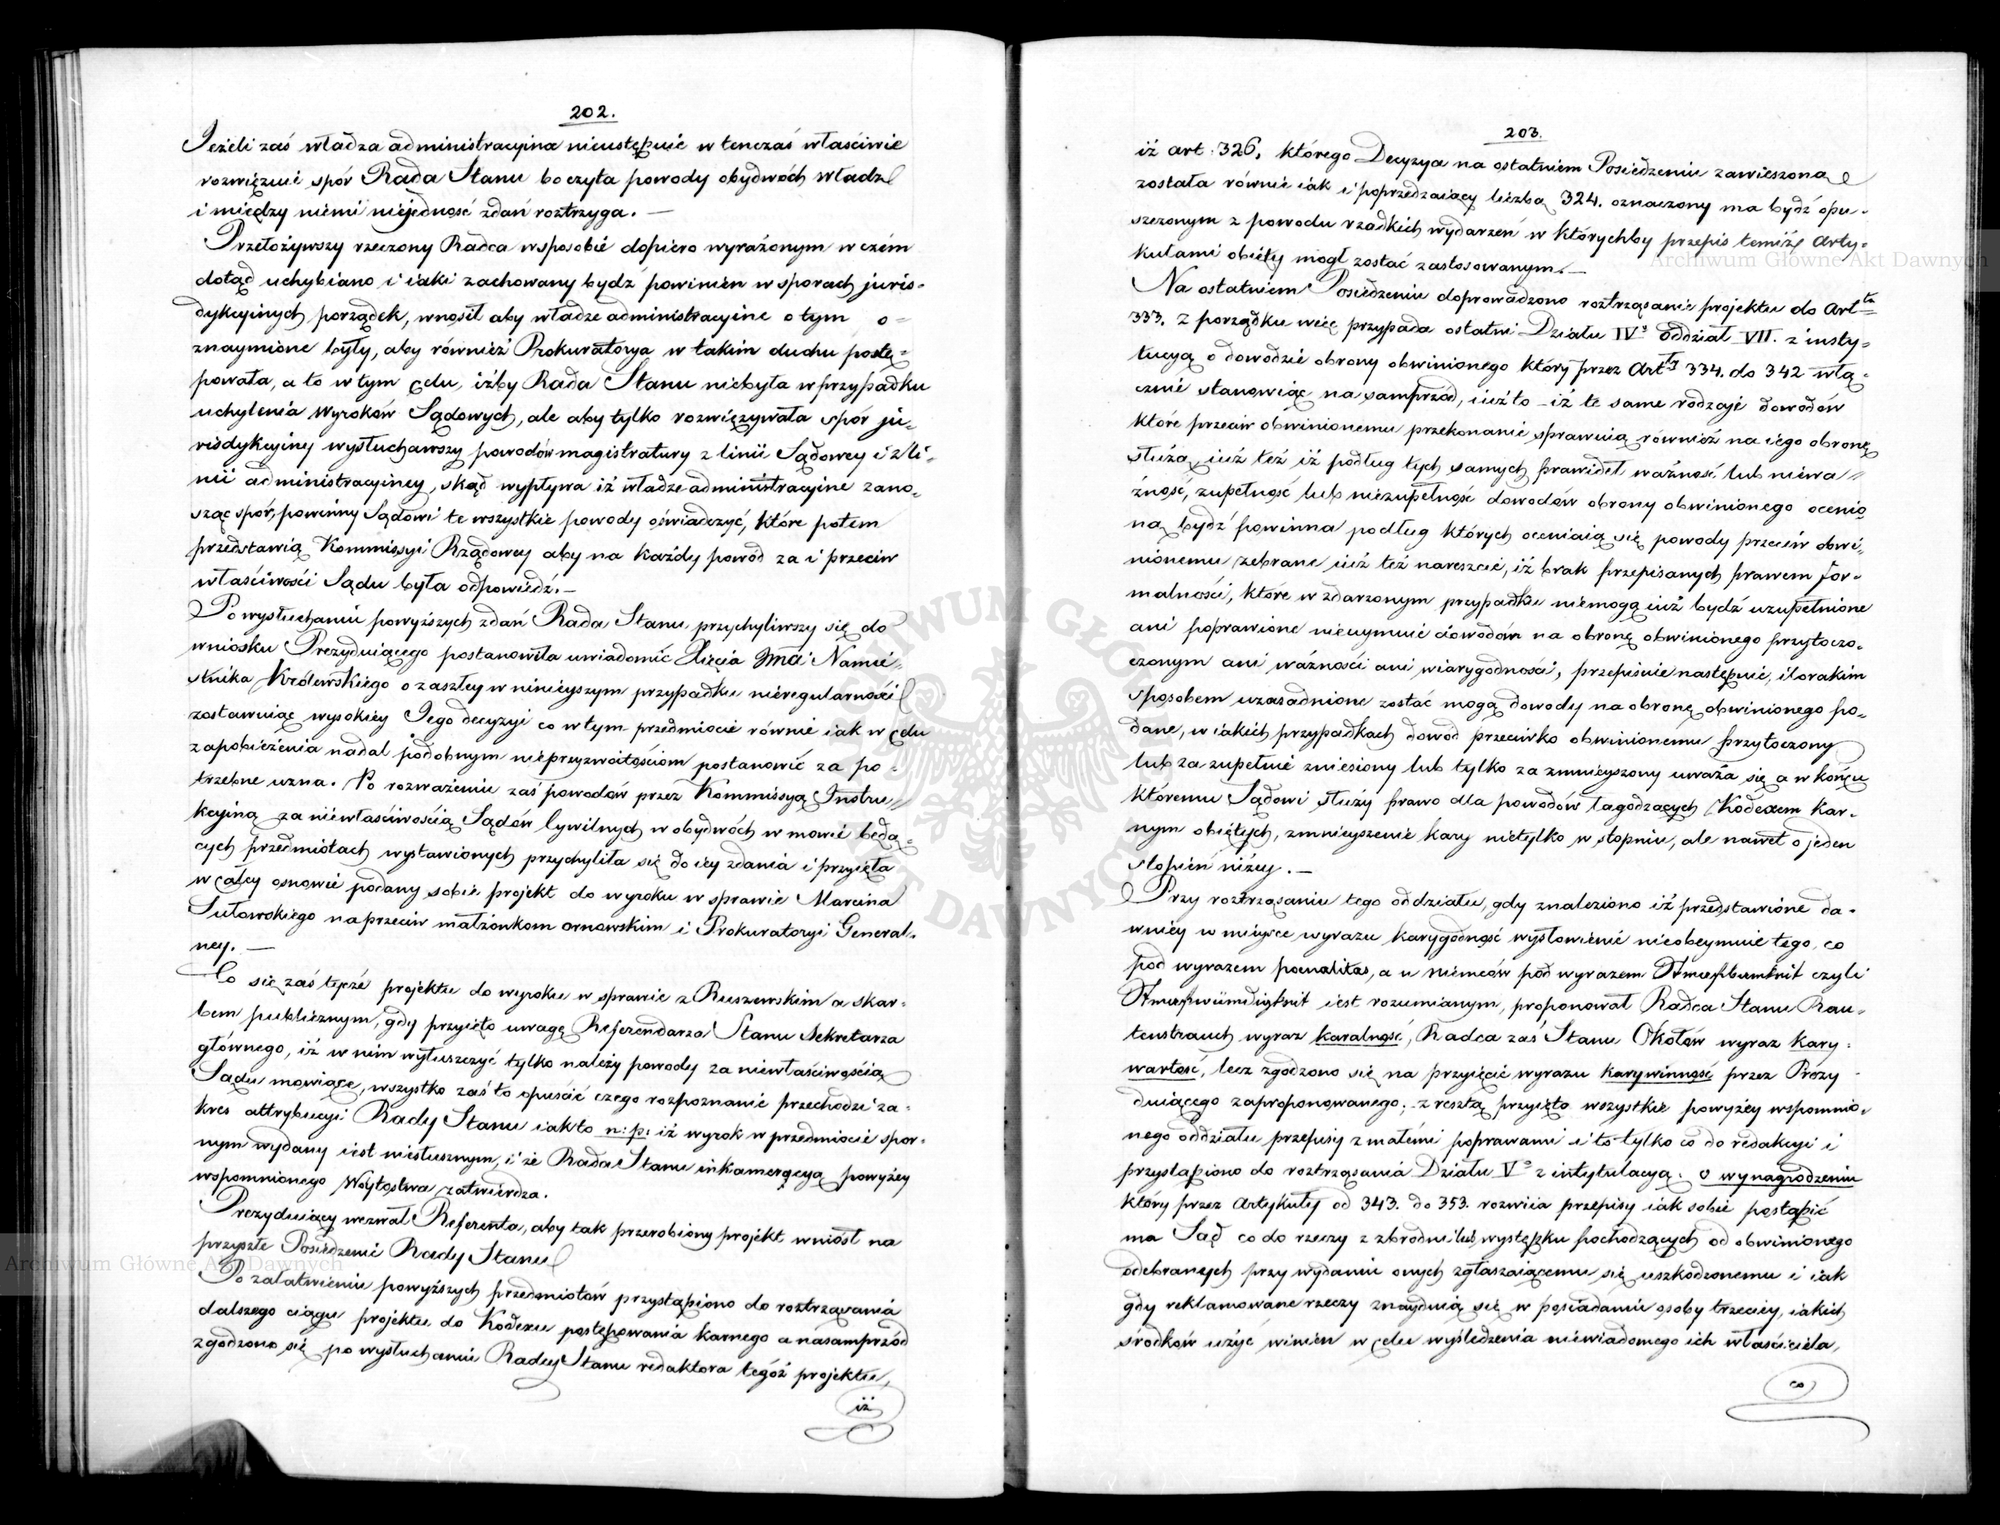 202.
Jeżeli zaś władza administracyina nieustępuie w tenczas właściwie
rozwięzuie spór Rada Stanu bo czyta powody obydwóch władz
i między niemi niejedność zdań roztrzyga. —
Przełożywszy rzeczony Radca w sposobie dopiero wyrażonym w czém
dotąd uchybiano i iaki zachowany bydź powinien w sporach juris-
dykcyinych porządek, wnosił aby władze administracyine o tym o-
znaymione były, aby również Prokuratorya w takim duchu postę-
powała, a to w tym celu, iżby Rada Stanu niebyła w przypadku
uchylenia Wyroków Sądowych, ale aby tylko rozwięzywała spór ju-
risdykcyiny wysłuchawszy powodów magistratury z linii Sądowey i z li-
nii administracyiney, skąd wypływa iż władze administracyine zano-
sząc spór, powinny Sądowi te wszystkie powody oświadczyć, które potem
przedstawią Kommissyi Rządowey aby na każdy powód za i przeciw
właściwości Sądu była odpowiedź. —
Po wysłuchaniu powyższych zdań Rada Stanu przychyliwszy się do
wniosku Prezyduiącego postanowiła uwiadomić Xięcia Jmci Namie-
stnika Królewskiego o zaszłey w ninieyszym przypadku nieregularności
zostawuiąc wysokiey Jego decyzyi co w tym przedmiocie równie iak w celu
zapobieżenia nadal podobnym nieprzyzwoitościom postanowić za po-
trzebne uzna. Po rozważeniu zaś powodów przez Kommissyą Instru-
kcyiną za niewłaściwością Sądów Cywilnych w obydwóch w mowie będą-
cych przedmiotach wystawionych przychyliła się do iey zdania i przyięła
w całey osnowie podany sobie projekt do wyroku w sprawie Marcina
Sutowskiego naprzeciw małżonkom ornowskim i Prokuratoryi General-
ney. —
Co się zaś tycze projektu do wyroku w sprawie z Ruszewskim a skar-
bem publicznym, gdy przyięto uwagę Referendarza Stanu Sekretarza
głównego, iż w nim wyłuszczyć tylko należy powody za niewłaściwością
Sądu mowiące, wszystko zaś to opuścić czego rozpoznanie przechodzi za-
kres attrybucyi Rady Stanu iakto n: p: iż wyrok w przedmiocie spor-
nym wydany iest niesłusznym, i że Rada Stanu inkameracyą powyżey
wspomnionego Woytostwa zatwierdza.
Prezyduiący wezwał Referenta, aby tak przerobiony projekt wniósł na
przyszłe Posiedzenie Rady Stanu
Po załatwieniu powyższych przedmiotów przystąpiono do roztrząsania
dalszego ciągu projektu do Kodexu postępowania karnego a nasamprzód
zgodzono się po wysłuchaniu Radcy Stanu redaktora tegóż projektu,
iż
203.
iż art. 326, którego Decyzya na ostatniem Posiedzeniu zawieszona
została równie iak i poprzedzaiący liczbą 324. oznaczony ma bydź opu-
szczonym z powodu rzadkich wydarzeń w którychby przepis temiż arty-
kułami obięty mogł zostać zastosowanym. —
Na ostatniem Posiedzeniu doprowadzono roztrząsanie projektu do Art
333. z porządku więc przypada ostatni Działu IV oddział VII. z insty-
tucyą o dowodzie obrony obwinionego który przez Art 334. do 342 włą-
cznie stanowiąc na samprzód, iużto – iż te same rodzaje dowodów
które przeciw obwinionemu przekonanie sprawuią również na iego obronę
służą, iuż też iż podług tych samych prawideł ważność lub niewa-
żność, zupełność lub niezupełność dowodów obrony obwinionego ocenio
na bydź powinna podług których oceniaią się powody przeciw obwi-
nionemu zebrane, iuż też nareszcie, iż brak przepisanych prawem for-
malności, które w zdarzonym przypadku niemogą iuż bydź uzupełnione
ani poprawione nieuymuie dowodom na obronę obwinionego przytoczo-
czonym ani ważności ani wiarygodności, przepisuie następnie, ilorakim
sposobem uzasadnione zostać mogą dowody na obronę obwinionego po-
dane, w iakich przypadkach dowód przeciwko obwinionemu przytoczony
lub za zupełnie zniesiony lub tylko za zmnieyszony uważa się a w końcu
któremu Sądowi służy prawo dla powodów łagodzących Kodexem kar-
nym obiętych, zmnieyszenie kary nietylko w stopniu, ale nawet o jeden
stopień niżey. —
Przy roztrząsaniu tego oddziału, gdy znaleziono iż przedstawione da-
wniey w mieysce wyrazu karygodność wysłowienie nieobeymuie tego, co
pod wyrazem poenalitas, a u niemców pod wyrazem Strafbarkeit czyli
Strafwürdigkeit iest rozumianym, proponował Radca Stanu Rau-
tenstrauch wyraz karalność, Radca zaś Stanu Okołów wyraz kary-
wartość, lecz zgodzono się na przyięcie wyrazu karywinność przez Prezy-
duiącego zaproponowanego; zresztą przyięto wszystkie powyżey wspomnio-
nego oddziału przepisy z małemi poprawami i to tylko co do redakcyi i
przystąpiono do roztrząsania Działu V z intytulacyą: o wynagrodzeniu
który przez Artykuły od 343. do 353. rozwiia przepisy iak sobie postąpić
ma Sąd co do rzeczy z zbrodni lub występku pochodzących od obwinionego
odebranych przy wydaniu onych zgłaszaiącemu się uszkodzonemu i iak
gdy reklamowane rzeczy znayduią się w posiadaniu osoby trzeciey, iakich
srodków użyć winien w celu wyśledzenia niewiadomego ich właściciela,
co
Archiwum Główne Akt Dawnych
Archiwum Główne Akt Dawnych
ARCHIWUM GŁÓWNE AKT DAWNYCH